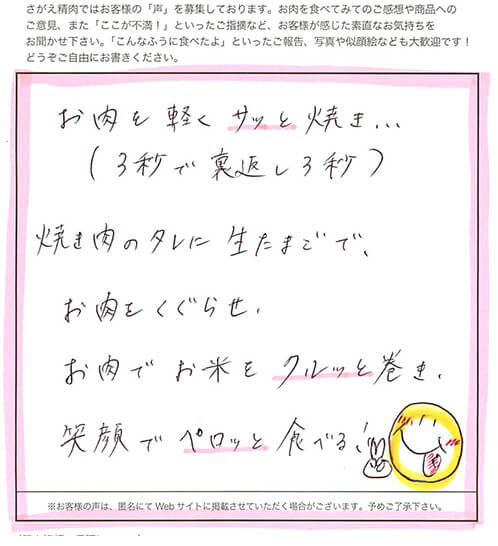 さがえ精肉ではお客様の「声」を募集しております。お肉を食べてみてのご感想や商品への
ご意見、また「ここが不満！」といったご指摘など、お客様が感じた素直なお気持ちを
お聞かせ下さい。「こんなふうに食べたよ」といったご報告、写真や似顔絵なども大歓迎です！
どうぞご自由にお書きください。
お肉を軽くサッと焼き…
(3秒で裏返し3秒)
焼き肉のタレに生たまごで、
お肉をくぐらせ、
お肉でお米をクルッと巻き、
笑顔でペロッと食べる！
※お客様の声は、匿名にてWebサイトに掲載させていただく場合がございます。予めご了承下さい。